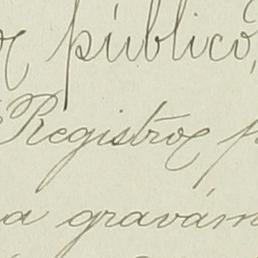 público,
Registro
a gravám